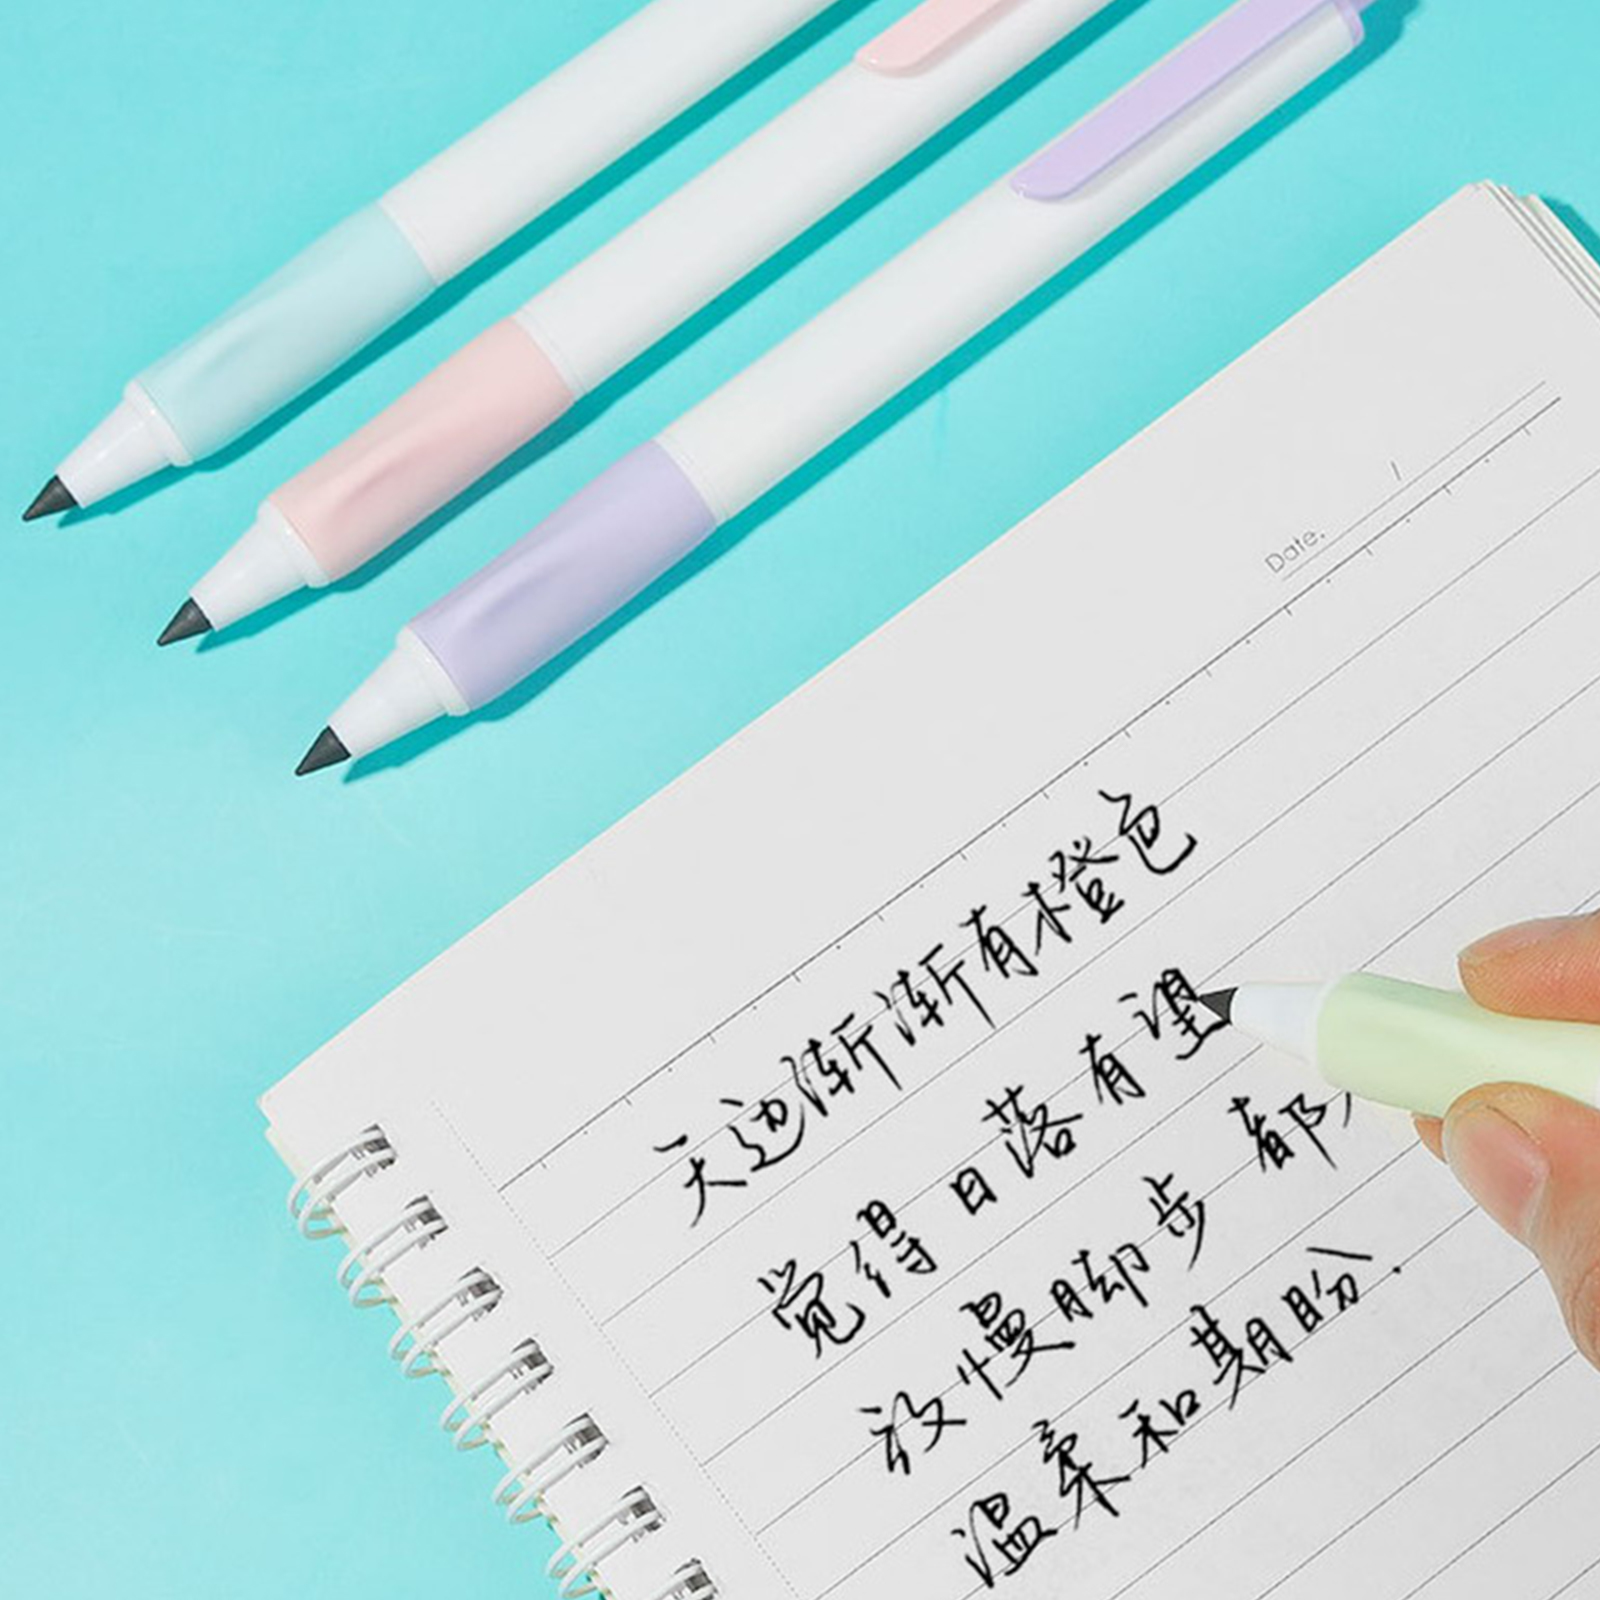 Date. /
天边渐渐有橙色
觉得日落有望
放慢脚步 都
温柔和期盼.